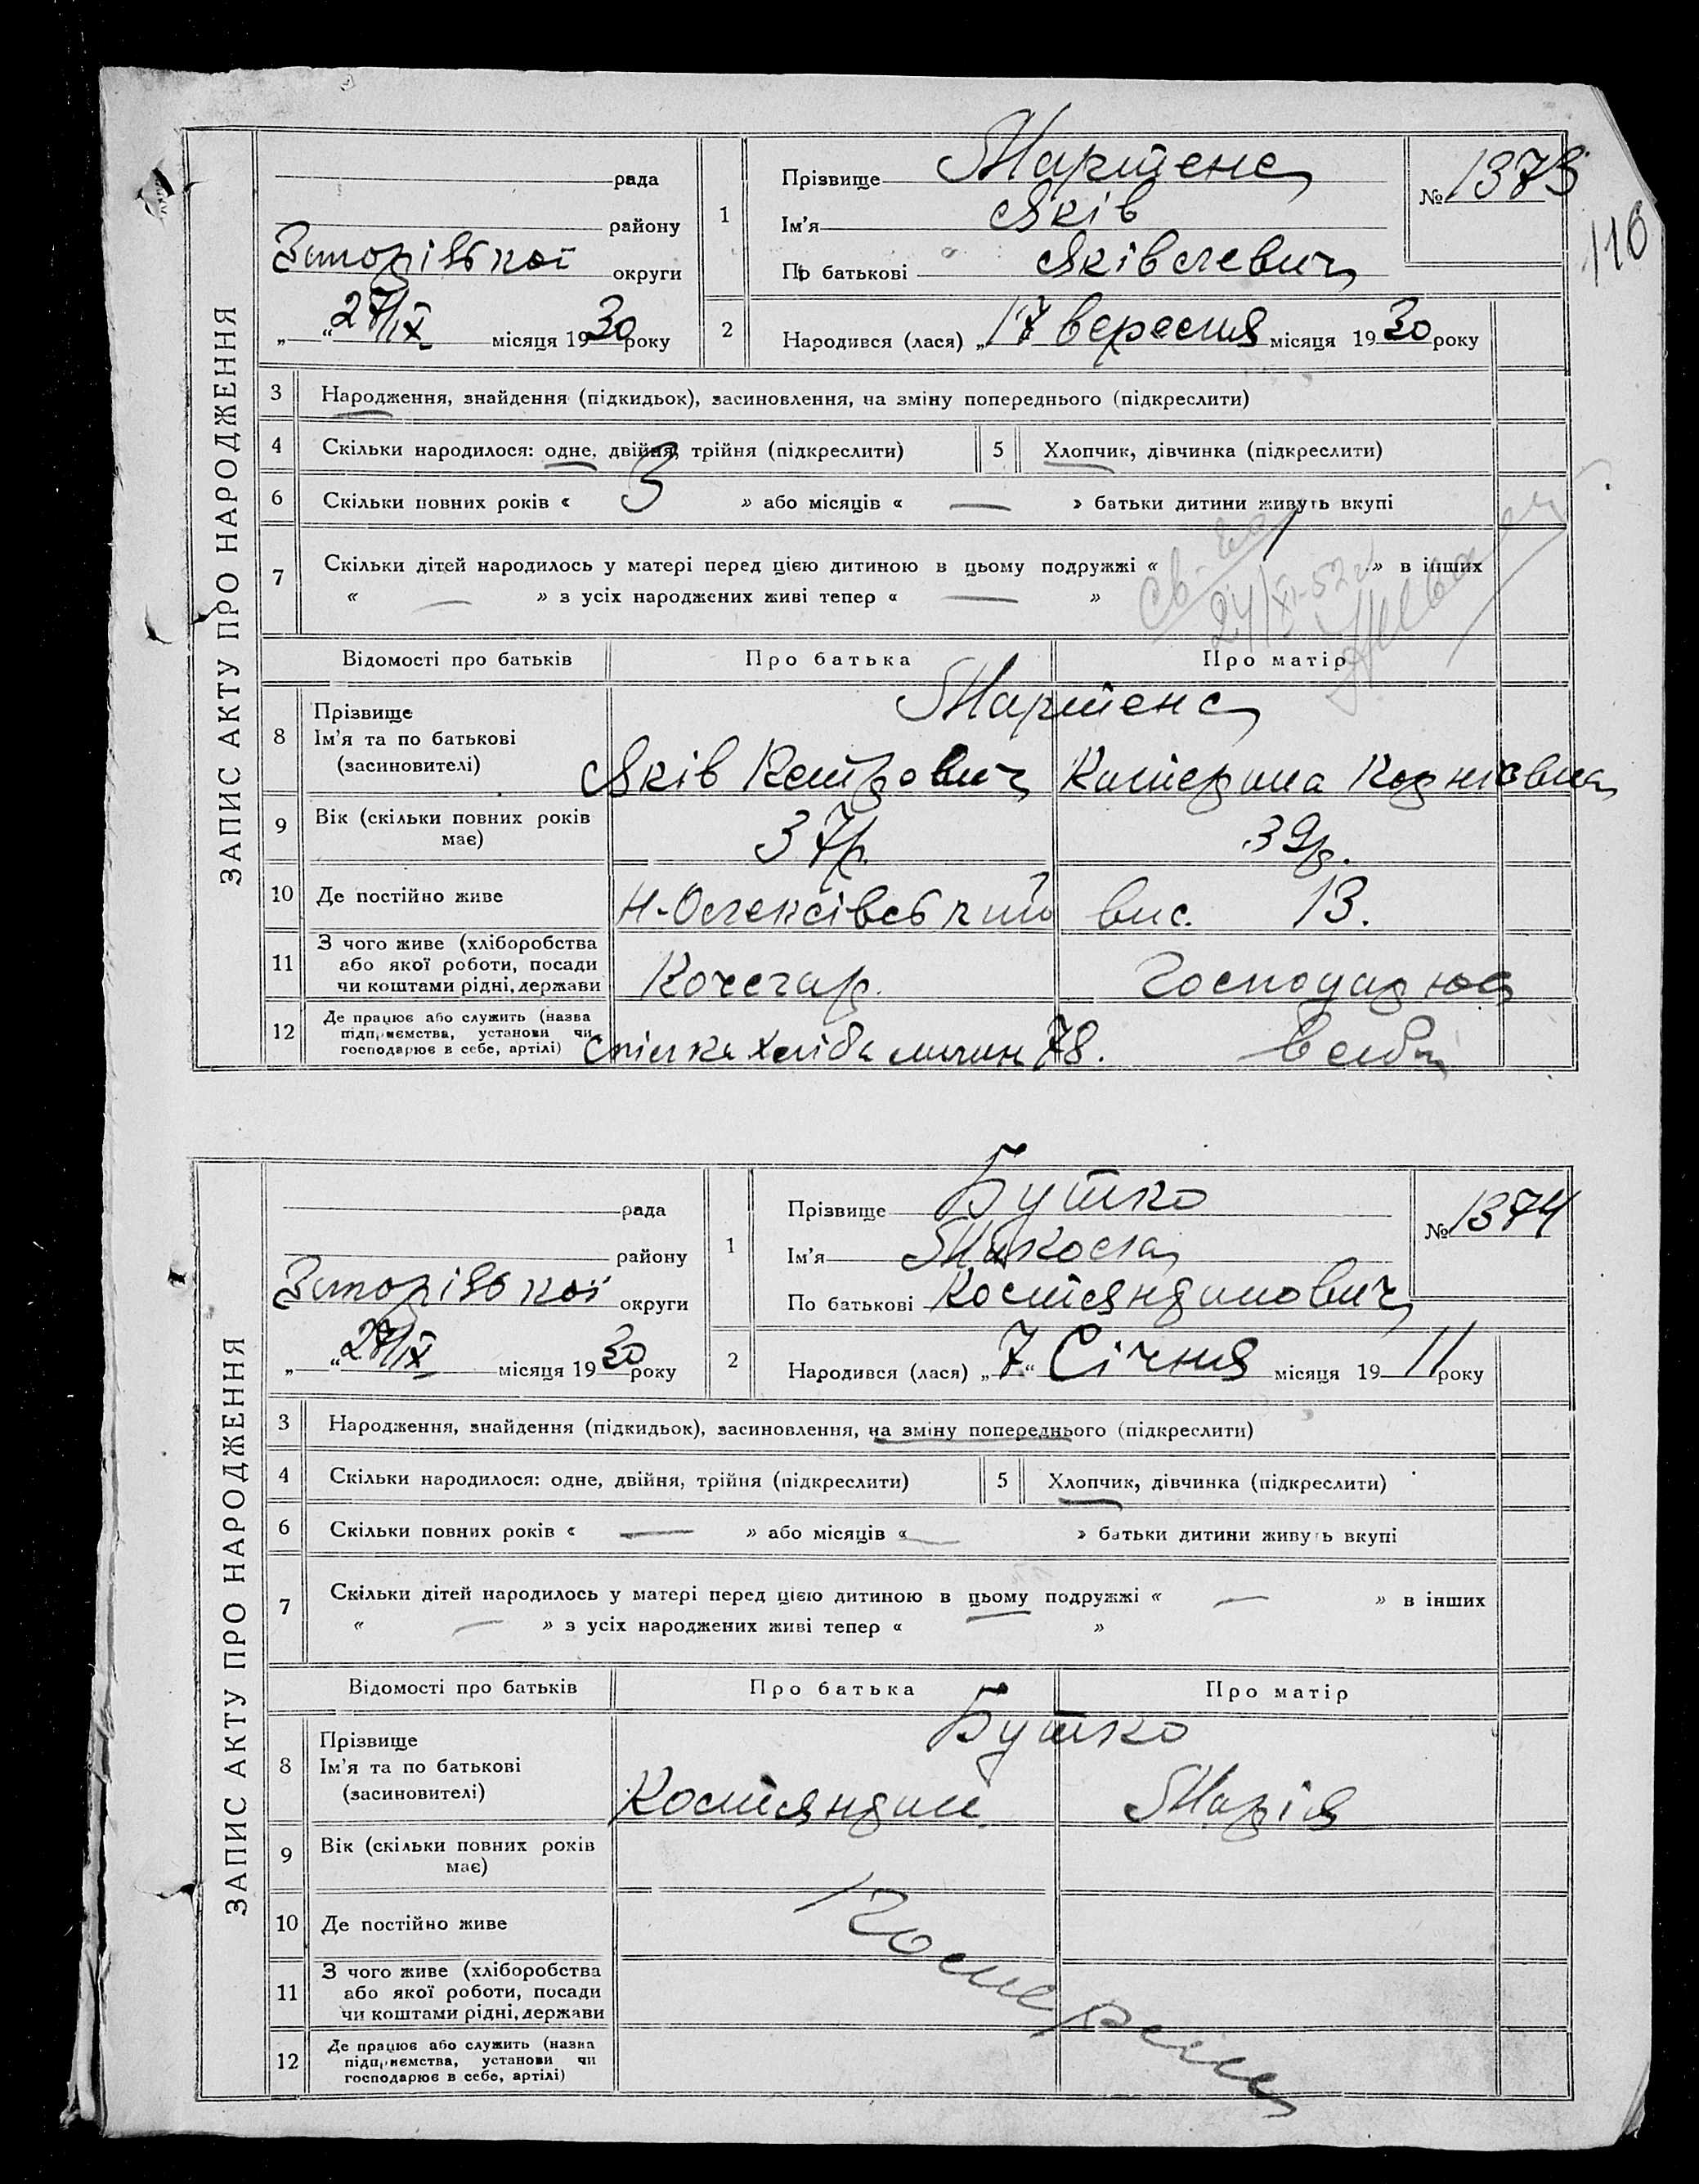 ЗАПИС АКТУ ПРО НАРОДЖЕННЯ
рада
району
Запорізької округи
„ “ 27/IX місяця 1930 року
1 Прізвище Мартенс
Ім'я Яків
По батькові Яківлевич
№ 1373
116
2 Народився (лася) „17 вересня місяця 1930 року
3 Народження, знайдення (підкидьок), засиновлення, на зміну попереднього (підкреслити)
4 Скільки народилося: одне, двійня, трійня (підкреслити) 5 Хлопчик, дівчинка (підкреслити)
6 Скільки повних років « 3 » або місяців « — » батьки дитини живуть вкупі
7 Скільки дітей народилось у матері перед цією дитиною в цьому подружжі « 1 » в інших
« — » з усіх народжених живі тепер « — »
Відомості про батьків Про батька Про матір
8 Прізвище
Ім'я та по батькові
(засиновителі)
Мартенс
Яків Петрович Катерина
9 Вік (скільки повних років має) 37р. 39р.
10 Де постійно живе Н-Олексівський вис. 13.
11 З чого живе (хліборобства
або якої роботи, посади
чи коштами рідні, держави
Кочегар. Господарює
12 Де працює або служить (назва
підприємства, установи чи
господарює в себе, артілі)
Спілка Хліба млин 78. в себе
ЗАПИС АКТУ ПРО НАРОДЖЕННЯ
рада
району
Запорізької округи
„ “ 27/IX місяця 1930 року
1 Прізвище Бутко
Ім'я Микола
По батькові Костяндинович
№ 1374
2 Народився (лася) „7“ Січня місяця 1911 року
3 Народження, знайдення (підкидьок), засиновлення, на зміну попереднього (підкреслити)
4 Скільки народилося: одне, двійня, трійня (підкреслити) 5 Хлопчик, дівчинка (підкреслити)
6 Скільки повних років « — » або місяців « — » батьки дитини живуть вкупі
7 Скільки дітей народилось у матері перед цією дитиною в цьому подружжі « — » в інших
« — » з усіх народжених живі тепер « »
Відомості про батьків Про батька Про матір
8 Прізвище
Ім'я та по батькові
(засиновителі)
Бутко
Костяндин Марія
9 Вік (скільки повних років має)
10 Де постійно живе
11 З чого живе (хліборобства
або якої роботи, посади
чи коштами рідні, держави
12 Де працює або служить (назва
підприємства, установи чи
господарює в себе, артілі)